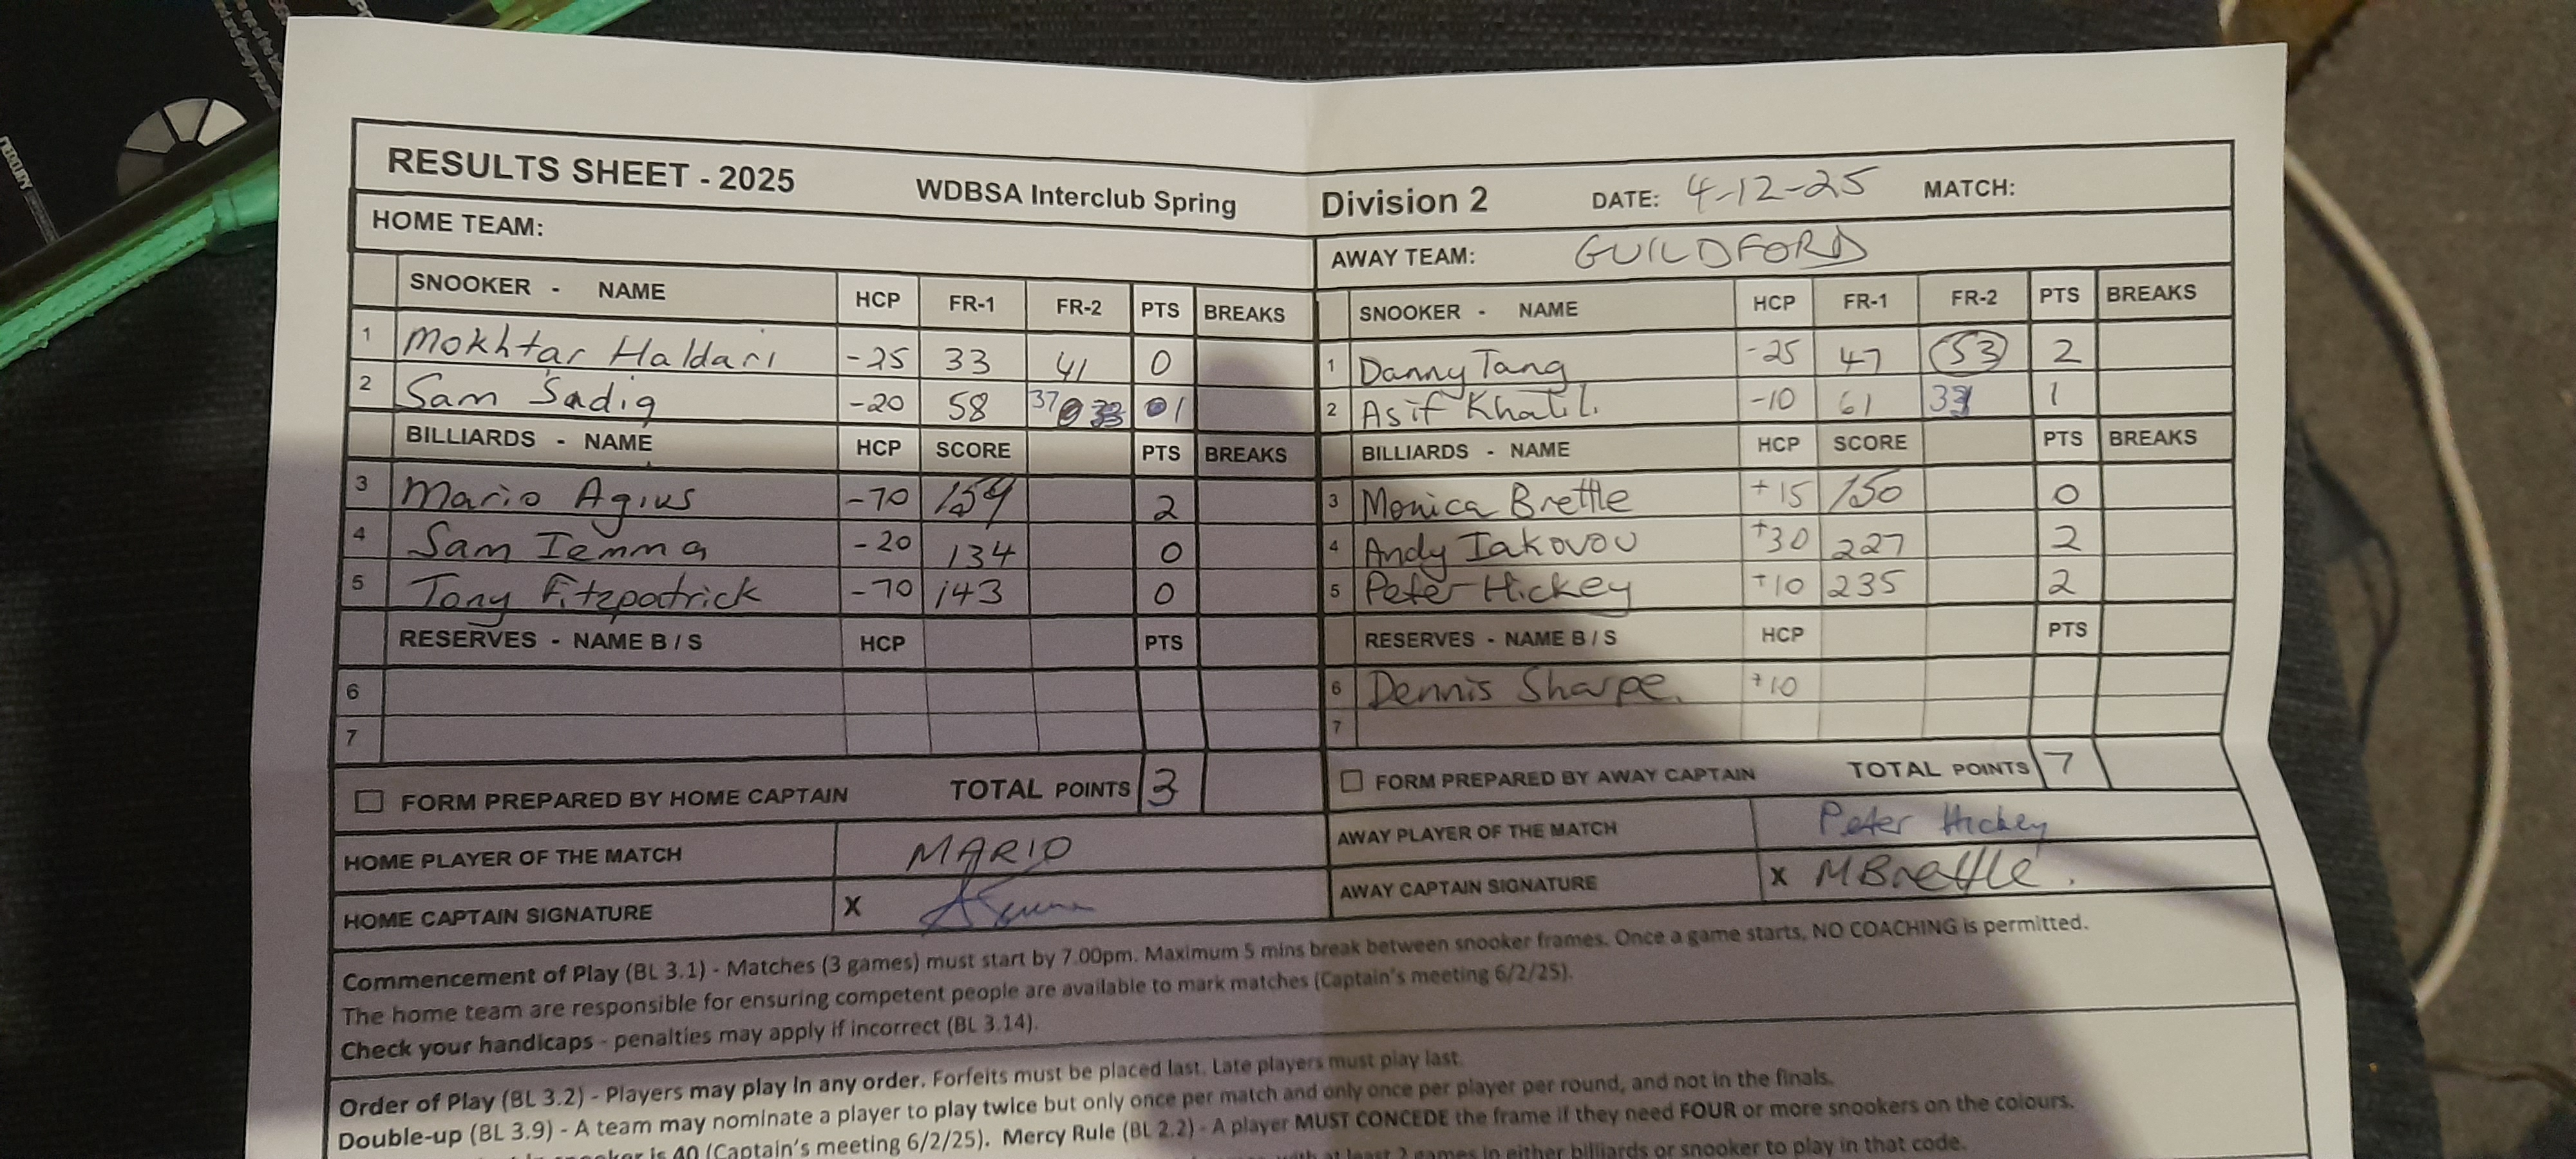 RESULTS SHEET - 2025 WDBSA Interclub Spring Division 2 DATE: 4-12-25 MATCH:
HOME TEAM: AWAY TEAM: GUILDFORD
SNOOKER - NAME HCP FR-1 FR-2 PTS BREAKS SNOOKER - NAME HCP FR-1 FR-2 PTS BREAKS
1 Mokhtar Haldari -25 33 41 0 1 Danny Tang -25 47 53 2
2 Sam Sadig -20 58 37 1 2 Asif Khalil. -10 61 1
BILLIARDS - NAME HCP SCORE PTS BREAKS BILLIARDS - NAME HCP SCORE PTS BREAKS
3 Mario Agius -70 159 2 3 Monica Brettle +15 150 0
4 Sam Iemma -20 134 0 4 Andy Iakovou +30 227 2
5 Tony Fitzpatrick -70 143 0 5 Peter Hickey +10 235 2
RESERVES - NAME B / S HCP PTS RESERVES - NAME B / S HCP PTS
6 6 Dennis Sharpe. +10
7 7
FORM PREPARED BY HOME CAPTAIN TOTAL POINTS 3 FORM PREPARED BY AWAY CAPTAIN TOTAL POINTS 7
HOME PLAYER OF THE MATCH MARIO AWAY PLAYER OF THE MATCH Peter Hickey
HOME CAPTAIN SIGNATURE X AWAY CAPTAIN SIGNATURE X MBrettle.
Commencement of Play (BL 3.1) - Matches (3 games) must start by 7.00pm. Maximum 5 mins break between snooker frames. Once a game starts, NO COACHING is permitted.
The home team are responsible for ensuring competent people are available to mark matches (Captain's meeting 6/2/25).
Check your handicaps - penalties may apply if incorrect (BL 3.14).
Order of Play (BL 3.2) - Players may play in any order. Forfeits must be placed last. Late players must play last.
Double-up (BL 3.9) - A team may nominate a player to play twice but only once per match and only once per player per round, and not in the finals.
is 40 (Captain's meeting 6/2/25). Mercy Rule (BL 2.2) - A player MUST CONCEDE the frame if they need FOUR or more snookers on the colours.
with at least 2 games in either billiards or snooker to play in that code.